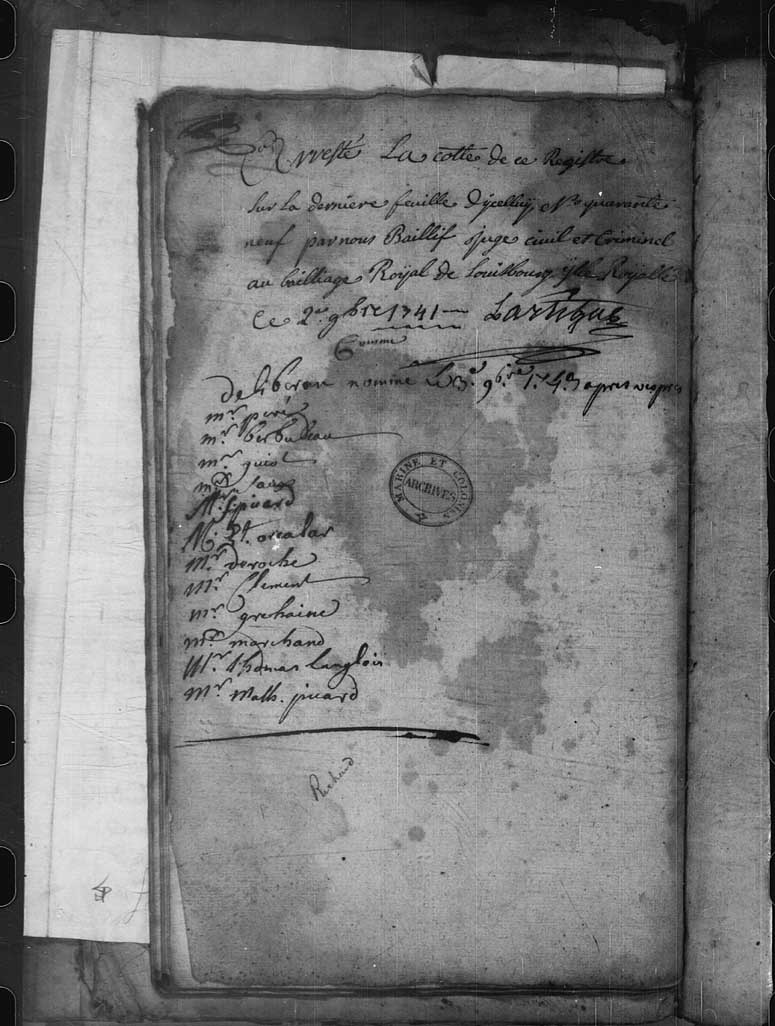 Arresté La cotte de ce Registre
sur La derniere feuille D'ycelluy No quarante
neuf par nous Baillif Juge civil et Criminel
au bailliage Royal de Louisbourg ysle Royalle
Ce 2e 9bre 1741 Lartigue
nomme Le 3e 9bre 1743 apres vespres
mr peré
mr berbudeau
mr
mr
Mr picard
Mr
Mr deroche
Mr Clement
mr grehaine
mr marchand
Mr thomas langlois
Mr Math. picard
MARINE ET COLONIES
ARCHIVES
Richard